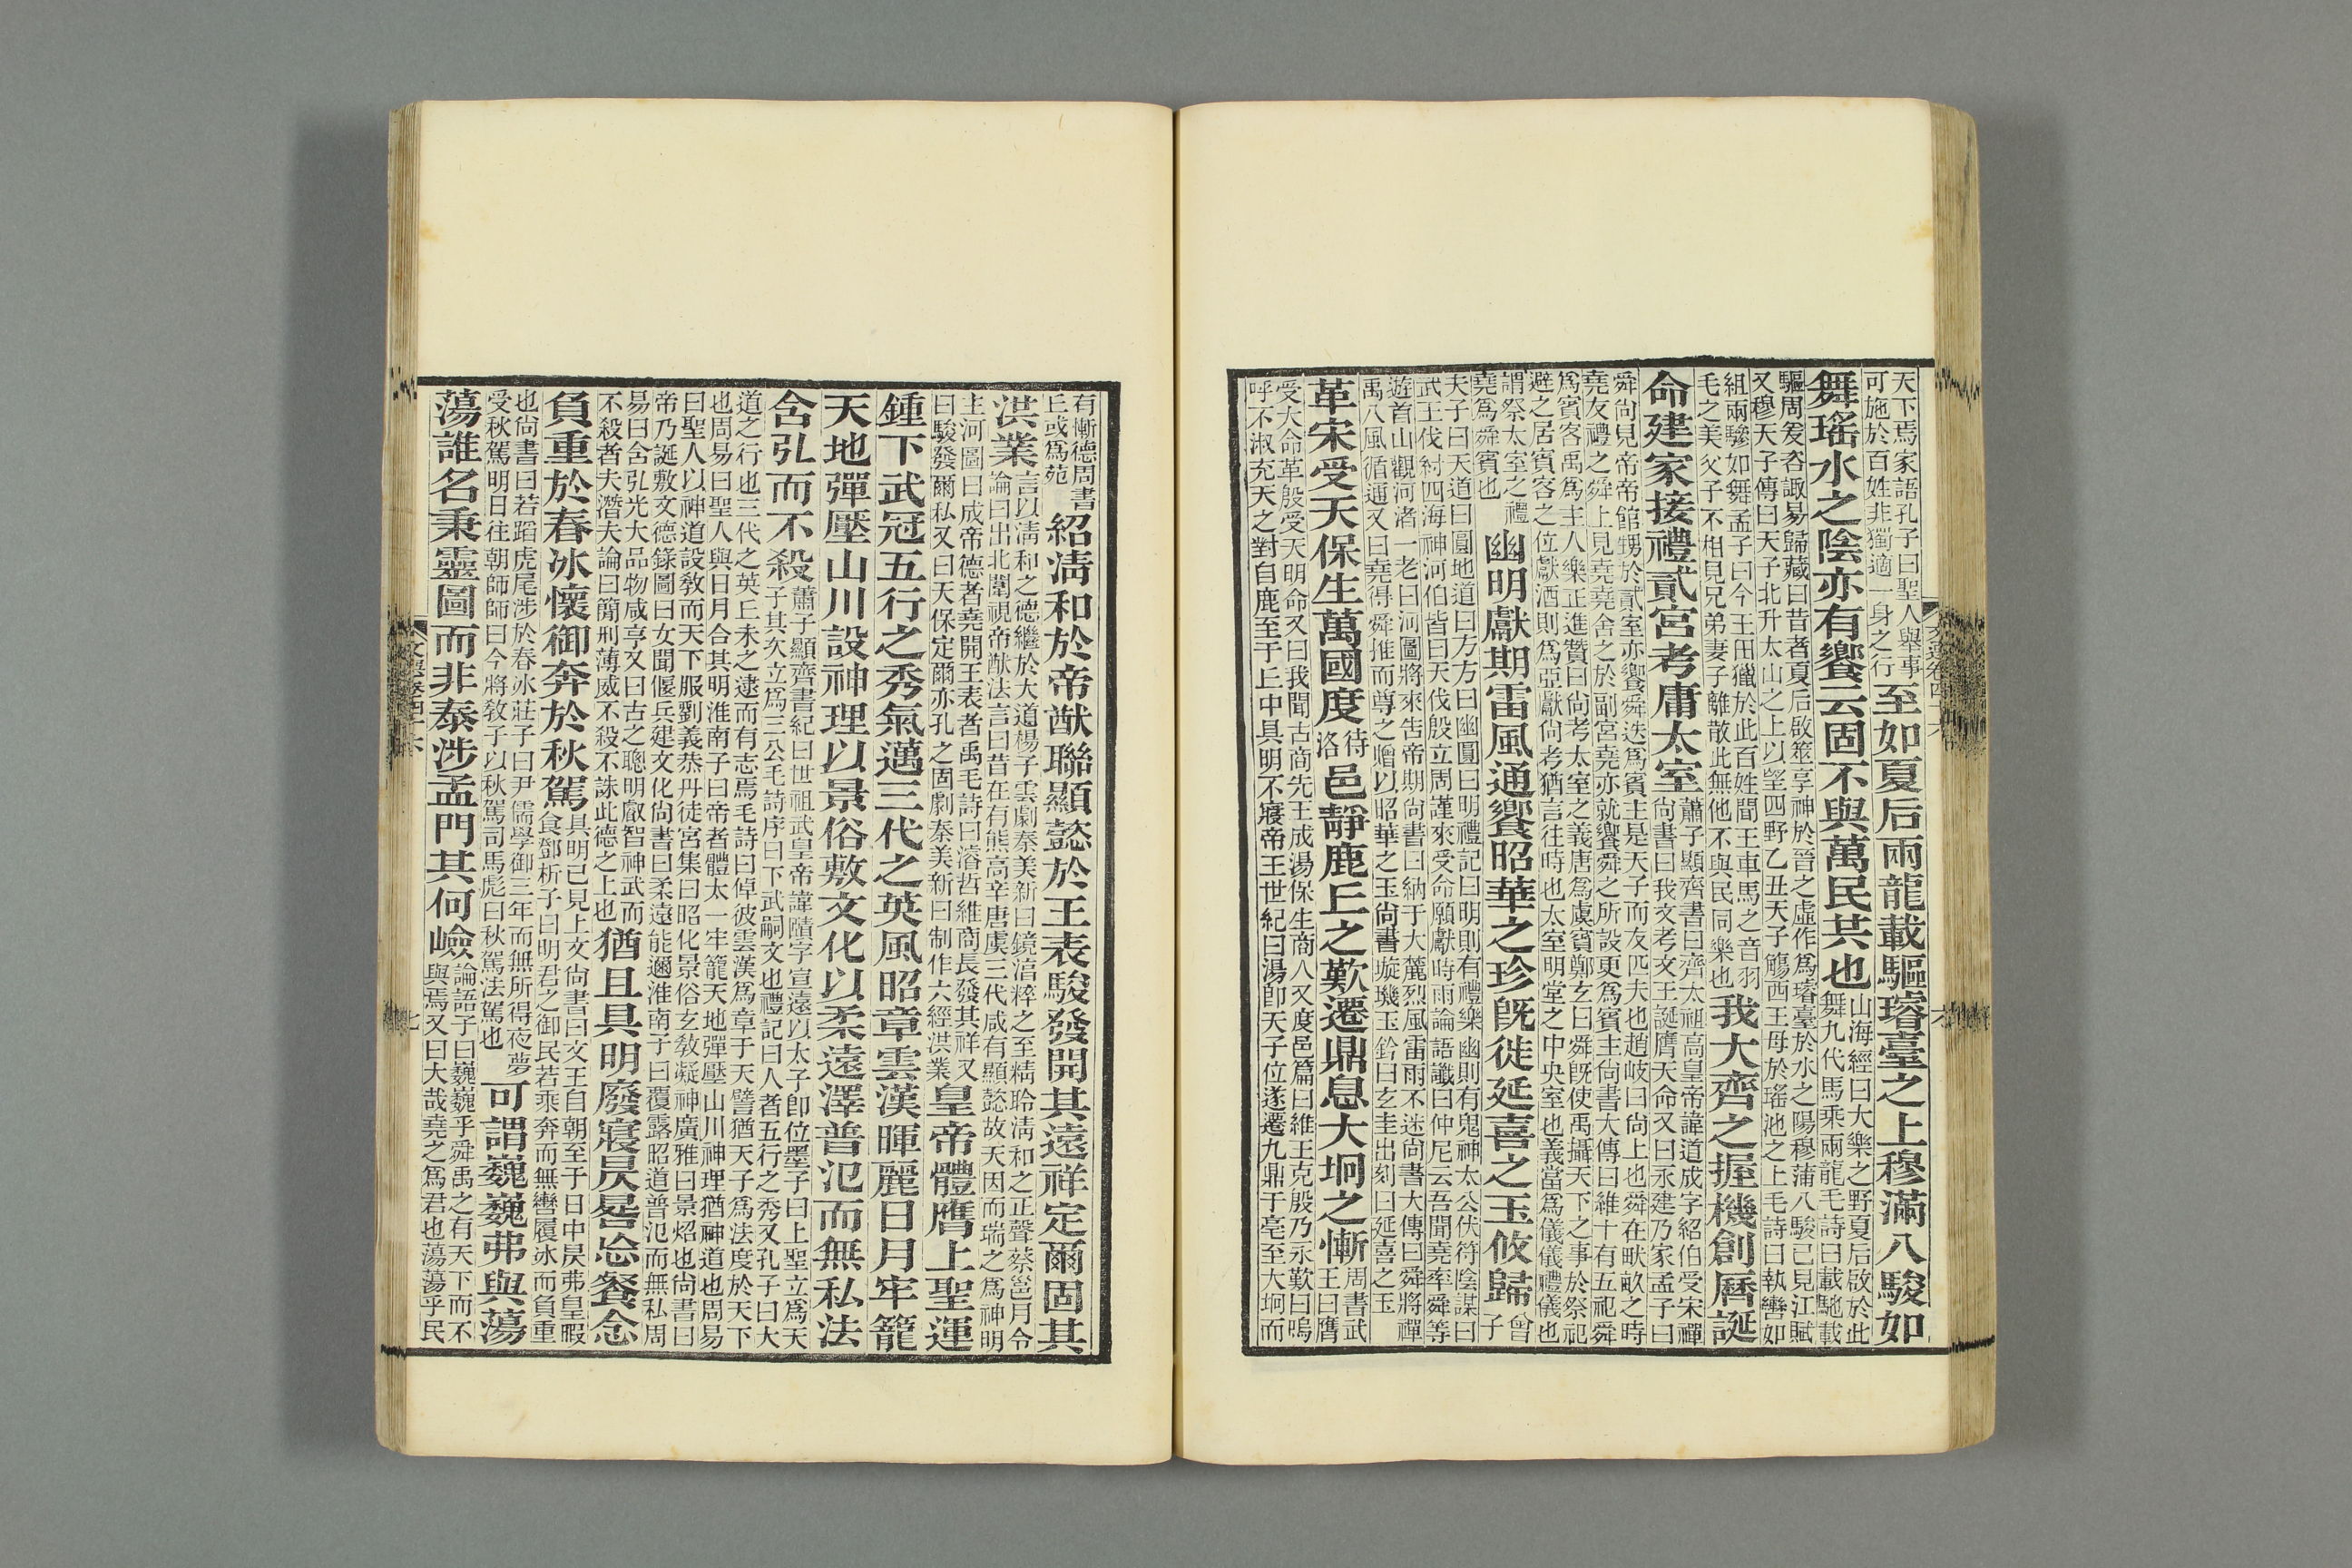 天下焉家語孔子曰聖人舉事
可施於百姓非獨適一身之行
至如夏后兩龍載驅璿臺之上穆滿八駿如
舞瑤水之陰亦有饗云固不與萬民共也
山海經曰大樂之野夏后啟於此
舞九代馬乘兩龍毛詩曰載馳載
驅周爰咨諏易歸藏曰昔者夏后啟筮享神於晉之虛作爲璿臺於水之陽穆蒲八駿已見江賦
又穆天子傳曰天子北升太山之上以望四野乙丑天子觴西王母於瑤池之上毛詩曰執轡如
組兩驂如舞孟子曰今王田獵於此百姓聞王車馬之音羽
毛之美父子不相見兄弟妻子離散此無他不與民同樂也
我大齊之握機創曆誕
命建家接禮貳宮考庸太室
蕭子顯齊書曰齊太祖高皇帝諱道成字紹伯受宋禪
尚書曰我文考文王誕膺天命又曰永建乃家孟子曰
舜尚見帝帝館甥於貳室亦饗舜迭爲賓主是天子而友匹夫也趙岐曰尚上也舜在畎畝之時
堯友禮之舜上見堯堯舍之於副宮堯亦就饗舜之所設更爲賓主尚書大傳曰維十有五祀舜
爲賓客禹爲主人樂正進贊曰尚考太室之義唐爲虞賓鄭玄曰舜旣使禹攝天下之事於祭祀
避之居賓客之位獻酒則爲亞獻尚考猶言往時也太室明堂之中央室也義當爲儀儀禮儀也
謂祭太室之禮
堯爲舜賓也
幽明獻期雷風通饗昭華之珍旣徙延喜之玉攸歸
曾
子
夫子曰天道曰圓地道曰方方曰幽圓曰明禮記曰明則有禮樂幽則有鬼神太公伏符陰謀曰
武王伐紂四海神河伯皆曰天伐殷立周謹來受命願獻時雨論語讖曰仲尼云吾聞堯率舜等
遊首山觀河渚一老曰河圖將來告帝期尚書曰納于大麓烈風雷雨不迷尚書大傳曰舜將禪
禹八風循通又曰堯得舜推而尊之贈以昭華之玉尚書璇璣玉鈐曰玄圭出刻曰延喜之玉
革宋受天保生萬國度
待
洛
邑靜鹿丘之歎遷鼎息大坰之慚
周書武
王曰膺
受大命革殷受天明命又曰我聞古商先王成湯保生商人又度邑篇曰維王克殷乃永歎曰嗚
呼不淑充天之對自鹿至于丘中具明不寢帝王世紀曰湯卽天子位遂遷九鼎于亳至大坰而
有慚德周書
丘或爲苑
紹淸和於帝猷聯顯懿於王表駿發開其遠祥定爾固其
洪業
言以淸和之德繼於大道楊子雲劇秦美新曰鏡淯粹之至精聆淸和之正聲蔡邕月令
論曰出北闈視帝猷法言曰昔在有熊高辛唐虞三代咸有顯懿故天因而瑞之爲神明
主河圖曰成帝德者堯開王表者禹毛詩曰濬哲維商長發其祥又
曰駿發爾私又曰天保定爾亦孔之固劇秦美新曰制作六經洪業
皇帝體膺上聖運
鍾下武冠五行之秀氣邁三代之英風昭章雲漢暉麗日月牢籠
天地彈壓山川設神理以景俗敷文化以柔遠澤普氾而無私法
含弘而不殺
蕭子顯齊書紀曰世祖武皇帝諱賾字宣遠以太子卽位墨子曰上聖立爲天
子其久立爲三公毛詩序曰下武嗣文也禮記曰人者五行之秀又孔子曰大
道之行也三代之英丘未之逮而有志焉毛詩曰倬彼雲漢爲章于天譬猶天子爲法度於天下
也周易曰聖人與日月合其明淮南子曰帝者體太一牢籠天地彈壓山川神理猶神道也周易
曰聖人以神道設敎而天下服劉義恭丹徒宮集曰昭化景俗玄敎凝神廣雅曰景炤也尚書曰
帝乃誕敷文德錄圖曰女聞偃兵建文化尚書曰柔遠能邇淮南子曰覆露昭道普氾而無私周
易曰含弘光大品物咸亨又曰古之聰明叡智神武而
不殺者夫潛夫論曰簡刑薄威不殺不誅此德之上也
猶且具明廢寢昃晷忘餐念
負重於春冰懷御奔於秋駕
具明已見上文尚書曰文王自朝至于日中昃弗皇暇
食鄧析子曰明君之御民若乘奔而無轡履冰而負重
也尚書曰若蹈虎尾涉於春冰莊子曰尹儒學御三年而無所得夜夢
受秋駕明日往朝師師曰今將敎子以秋駕司馬彪曰秋駕法駕也
可謂巍巍弗與蕩
蕩誰名秉靈圖而非泰涉孟門其何嶮
論語子曰巍巍乎舜禹之有天下而不
與焉又曰大哉堯之爲君也蕩蕩乎民